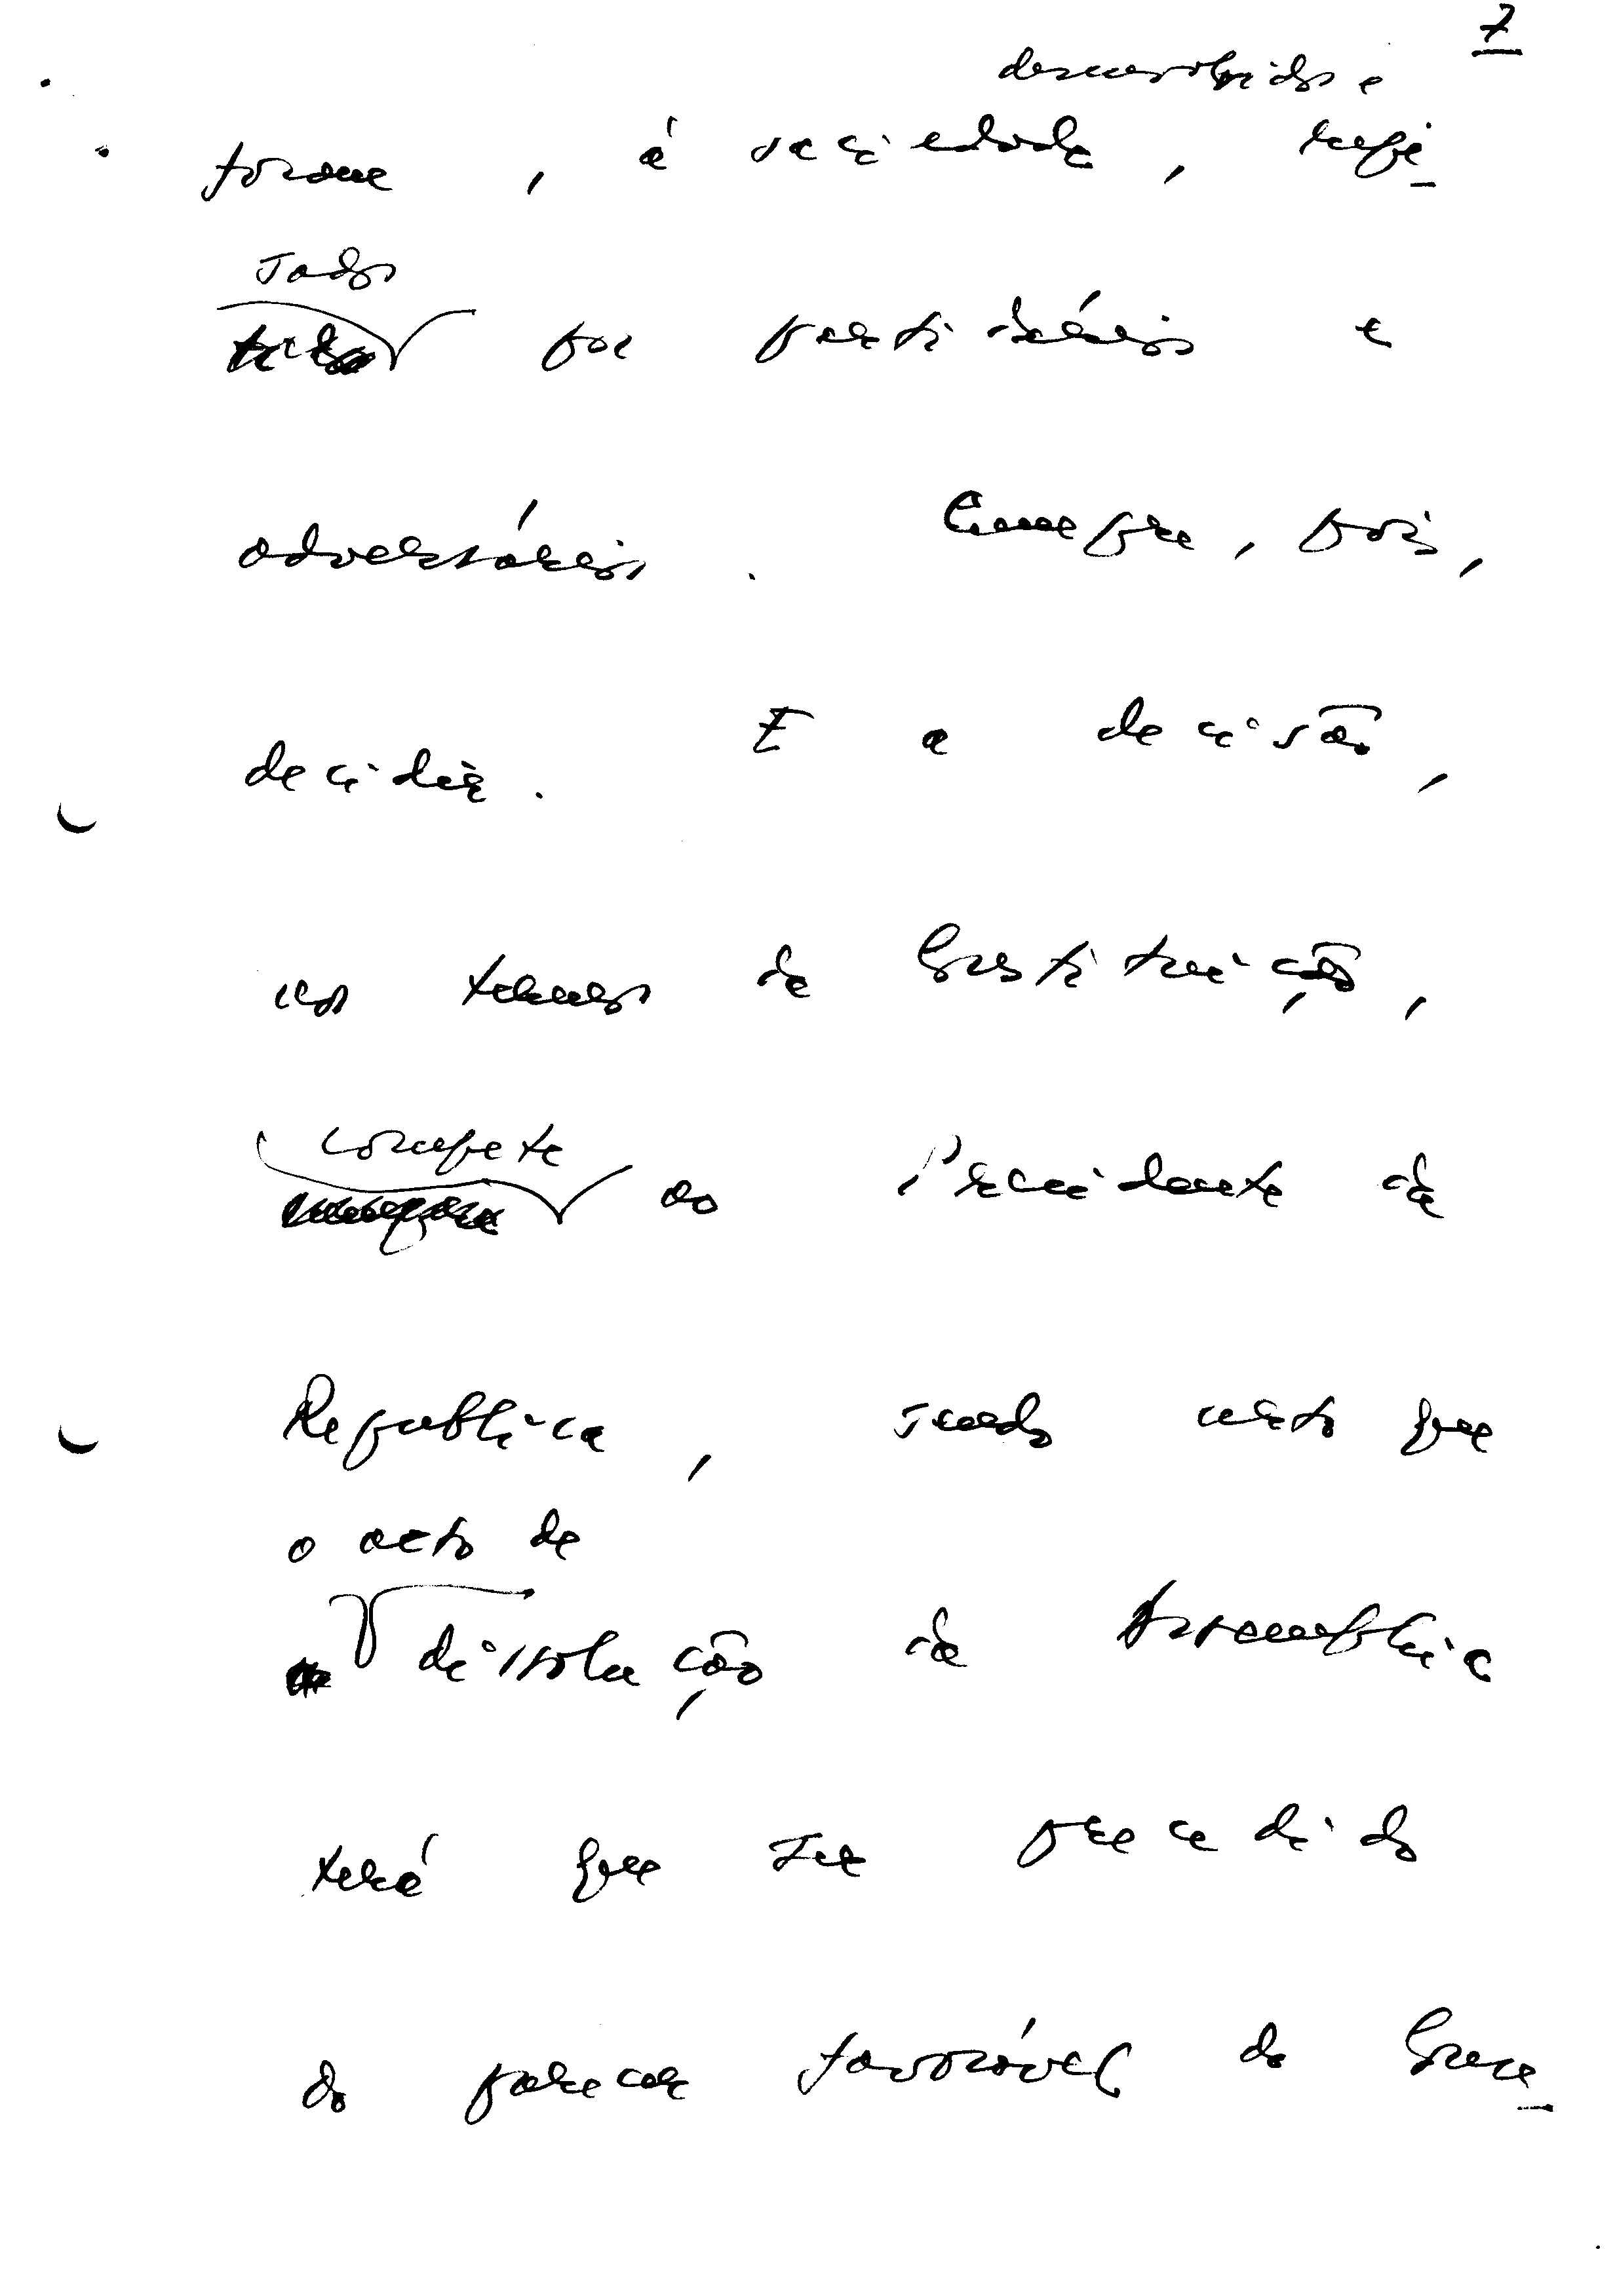 7
desenvolvidos e
forma, à saciedade, repe-
tados
por partidários e
adversários. Cumpre, pois,
decidir. E a decisão,
nos termos da Constituição,
compete
ao Presidente da
Republica, sendo certo que
o acto de
dissolução da Assembleia
terá que ser precedido
do parecer favorável do Conse-